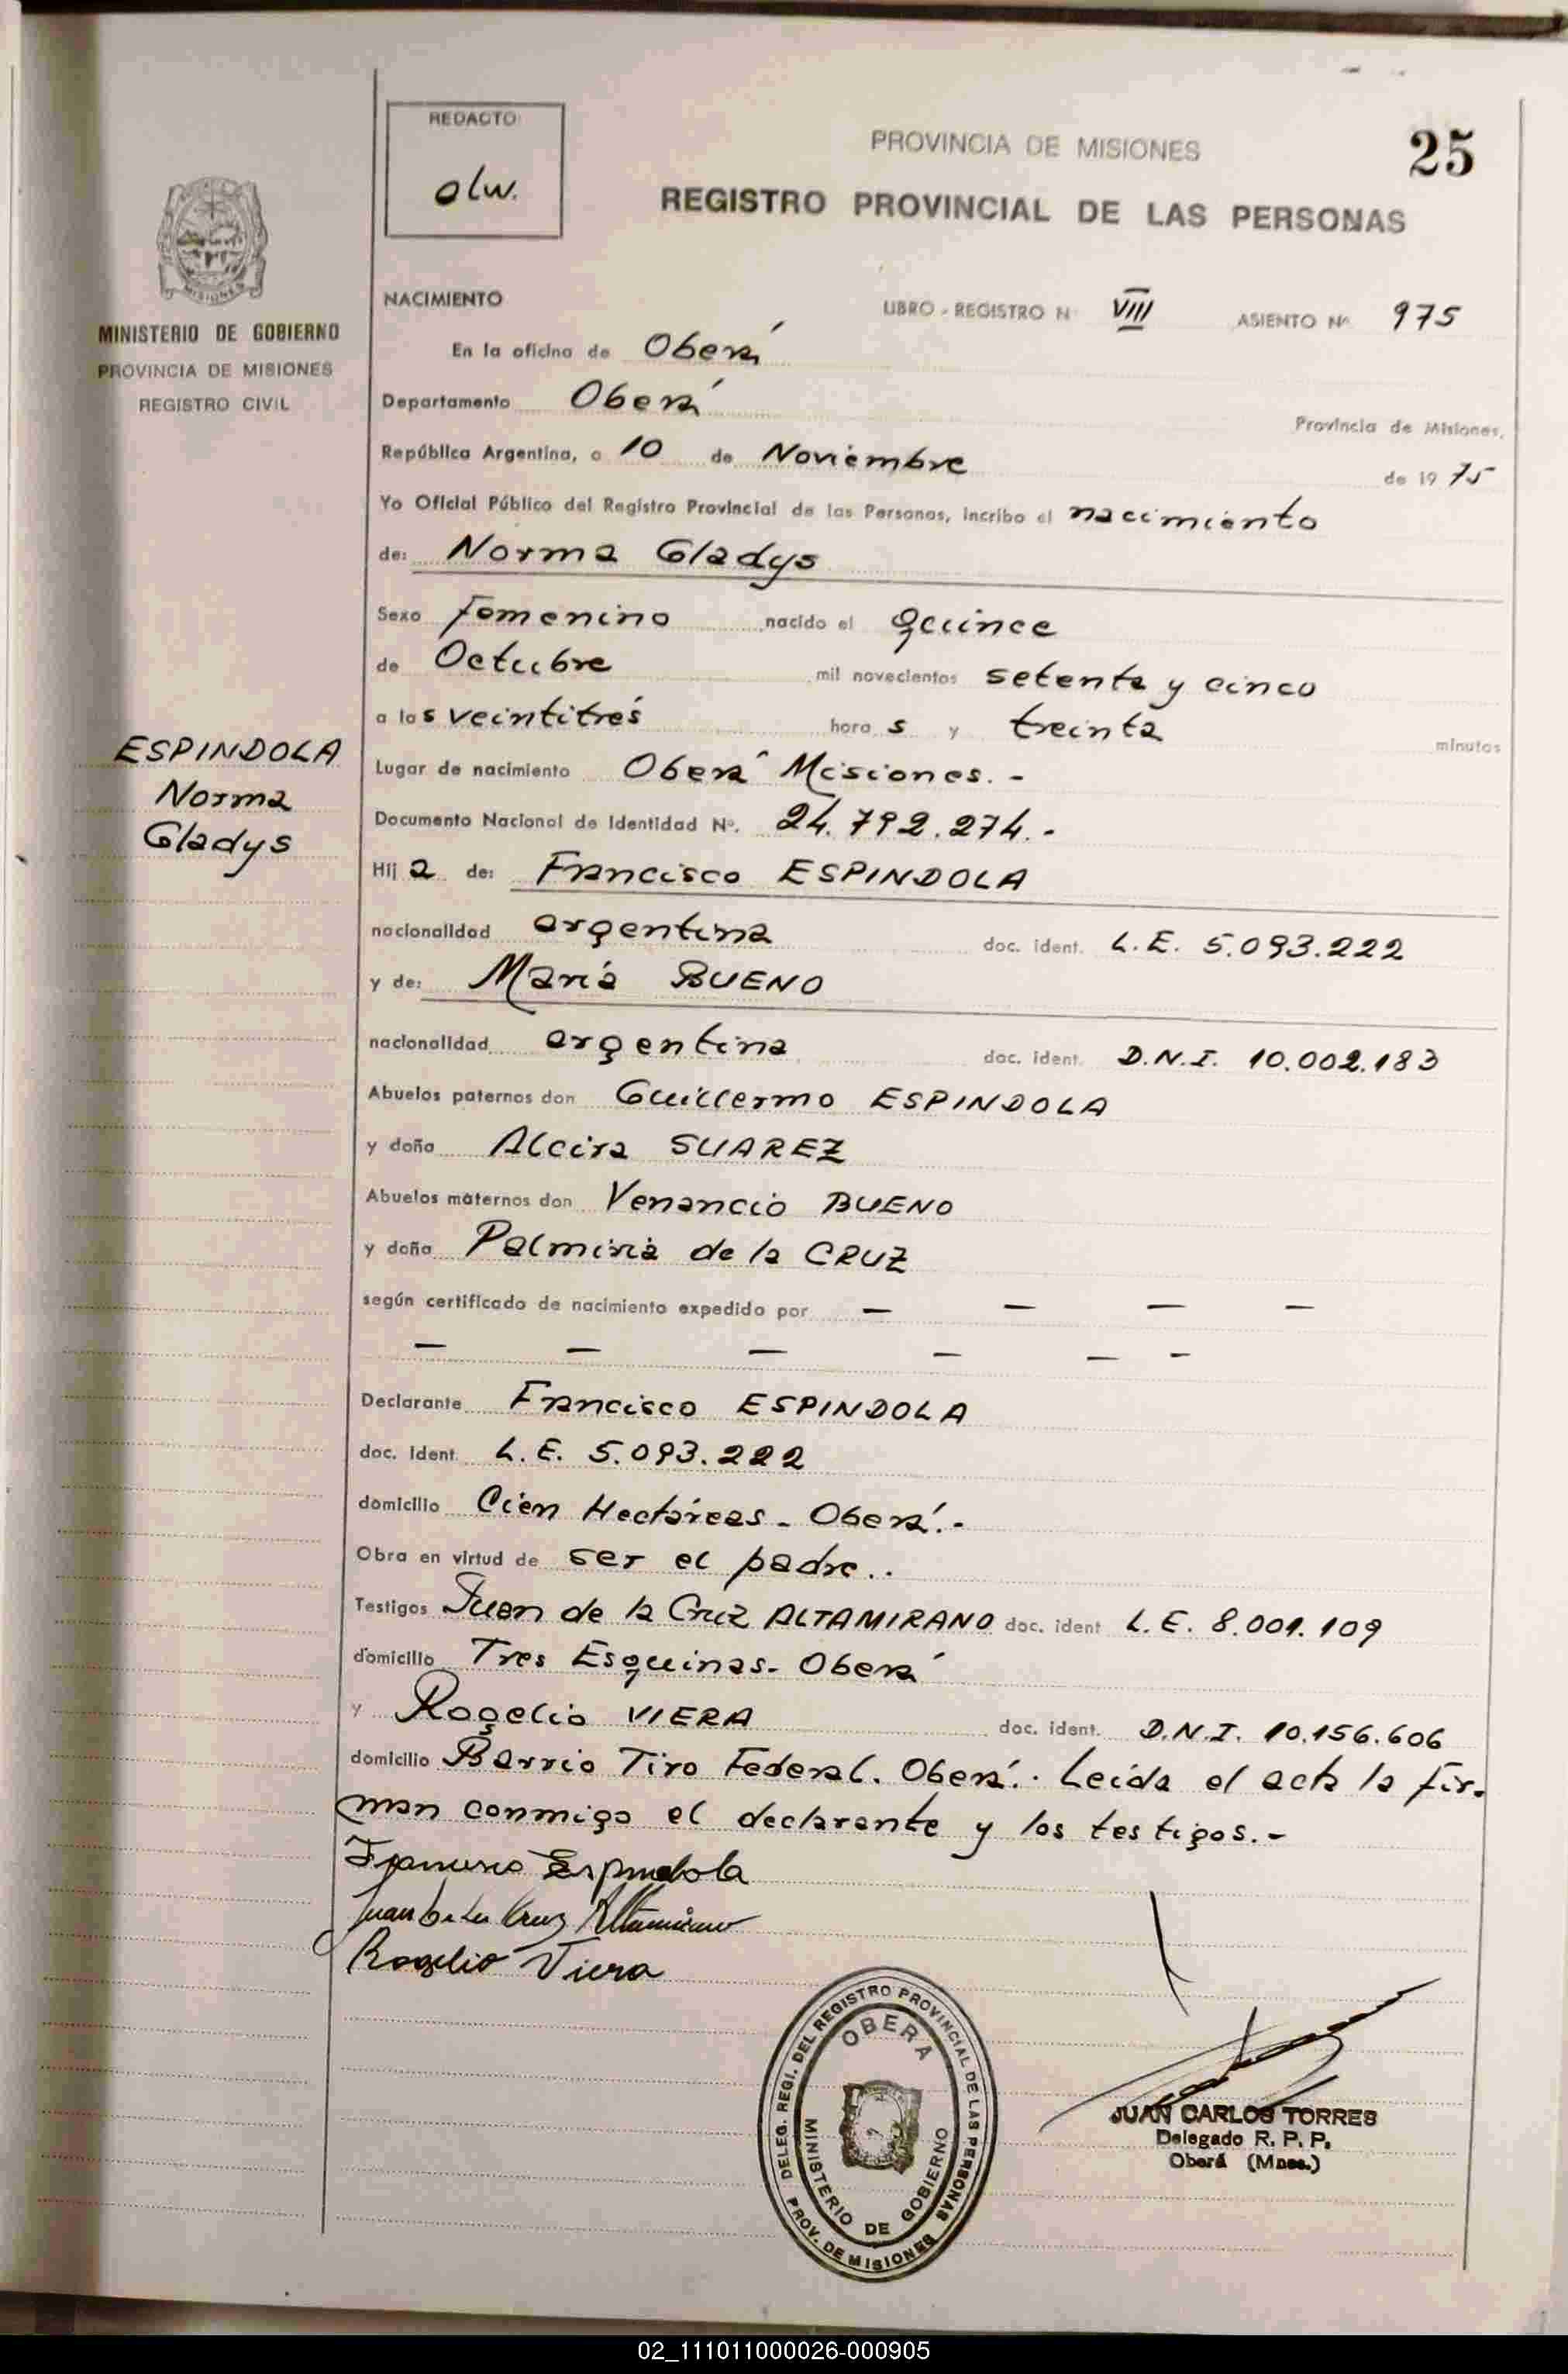 REDACTO:
olw.
PROVINCIA DE MISIONES
25
REGISTRO PROVINCIAL DE LAS PERSONAS
MISIONES
MINISTERIO DE GOBIERNO
PROVINCIA DE MISIONES
REGISTRO CIVIL
NACIMIENTO
LIBRO - REGISTRO N° VIII ASIENTO N° 975
En la oficina de Oberá
Departamento Oberá
Provincia de Misiones,
República Argentina, a 10 de Noviembre de 1975
Yo Oficial Público del Registro Provincial de las Personas, incribo el nacimiento
de: Norma Gladys
Sexo Femenino nacido el quince
de Octubre mil novecientos setenta y cinco
a las veintitrés horas y treinta minutos
ESPINDOLA
Norma
Gladys
Lugar de nacimiento Oberá Misiones.-
Documento Nacional de Identidad N°. 24.792.274.-
Hija de: Francisco ESPINDOLA
nacionalidad argentina doc. ident. L.E. 5.093.222
y de: María BUENO
nacionalidad argentina doc. ident. D.N.I. 10.002.183
Abuelos paternos don Guillermo ESPINDOLA
y doña Alcira SUAREZ
Abuelos maternos don Venancio BUENO
y doña Palmiria de la CRUZ
según certificado de nacimiento expedido por — — — —
— — — — — -
Declarante Francisco ESPINDOLA
doc. ident. L.E. 5.093.222
domicilio Cien Hectáreas - Oberá.-
Obra en virtud de ser el padre..
Testigos Juan de la Cruz ALTAMIRANO doc. ident L.E. 8.001.109
domicilio Tres Esquinas- Oberá
y Rogelio VIERA doc. ident. D.N.I. 10.156.606
domicilio Barrio Tiro Federal. Oberá.- Leída el acta la fir-
man conmigo el declarante y los testigos.-
Francisco Espindola
Juan de la Cruz Altamirano
Rogelio Viera
DELEG. REGI. DEL REGISTRO PROVINCIAL DE LAS PERSONAS
OBERA
MINISTERIO DE GOBIERNO
PROV. DE MISIONES
JUAN CARLOS TORRES
Delegado R. P. P.
Oberá (Mnes.)
02_111011000026-000905